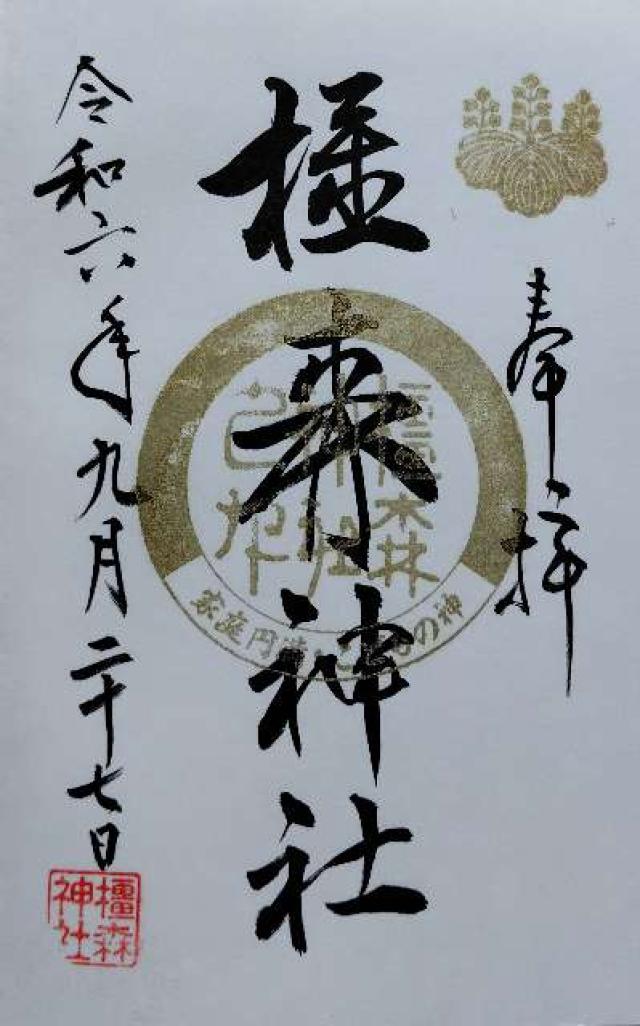 奉拝
橿森神社
令和六年九月二十七日
橿森
神社
家庭円満・こどもの神
橿森
神社